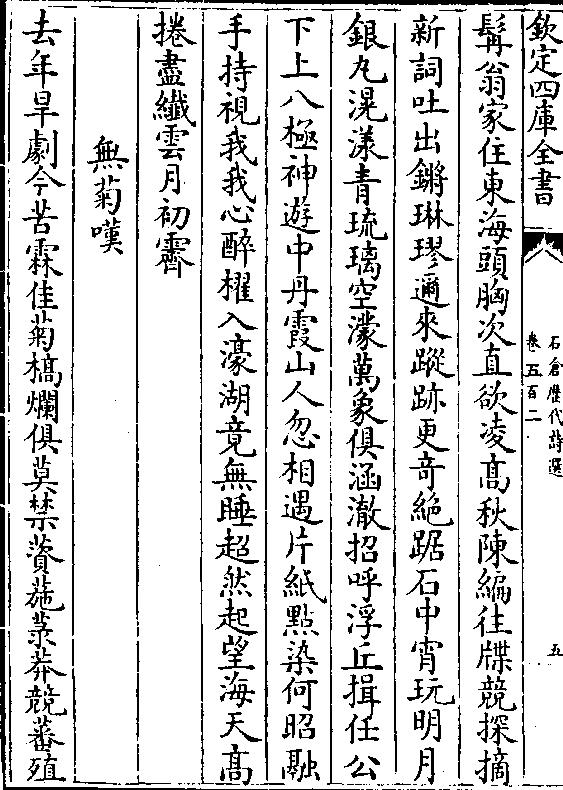 欽定四庫全書
石倉歷代詩選
卷五百二
五
髯翁家住東海頭胸次直欲凌髙秋陳編往牒競探摘
新詞吐出鏘琳璆邇來蹤跡更竒絶踞石中宵玩明月
銀丸滉漾青琉璃空濛萬象俱涵澈招呼浮丘揖任公
下上八極神遊中丹霞山人忽相遇片紙點染何昭融
手持視我我心醉櫂入濠湖竟無睡超然起望海天髙
捲盡纎雲月初霽
無菊嘆
去年旱劇今苦霖佳菊槁爛俱莫禁薋葹菉莽競蕃殖